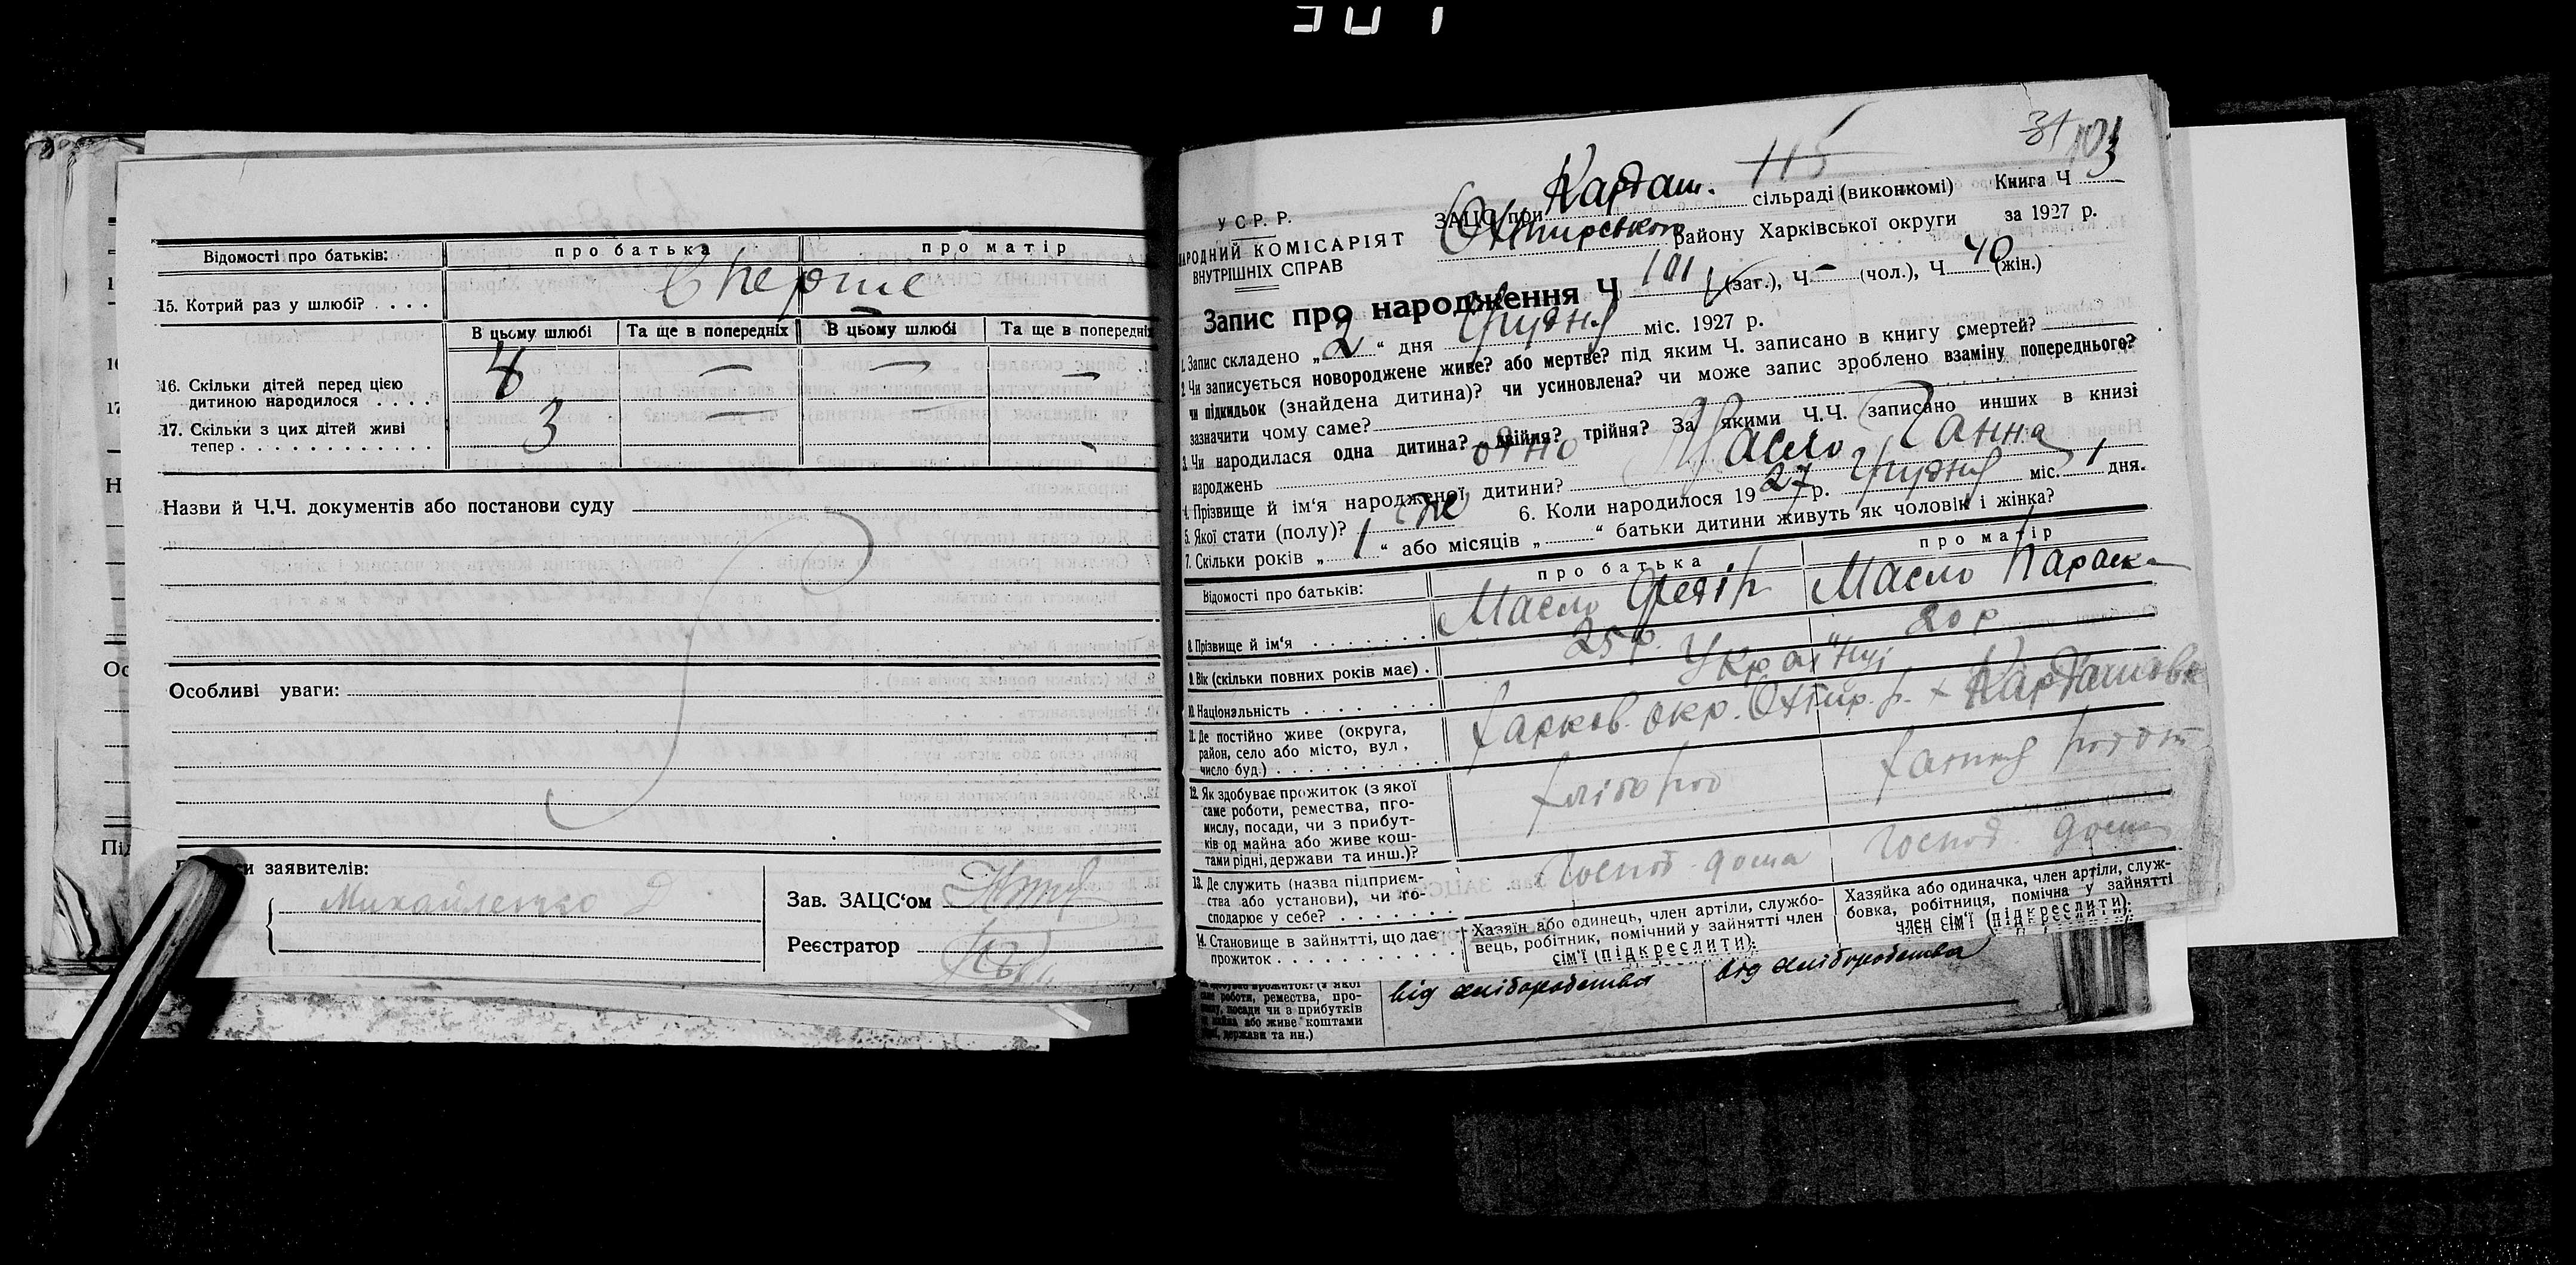 Відомості про батьків: про батька про матір
15. Котрий раз у шлюбі? . . . . Вперше
В цьому шлюбі Та ще в попередніх В цьому шлюбі Та ще в попередніх
16. Скільки дітей перед цією
дитиною народилося . . . . 4 — — —
17. Скільки з цих дітей живі
тепер . . . . . . . . . . . . 3 —
Назви й Ч.Ч. документів або постанови суду
Особливі уваги:
заявителів:
Михайленко Д
Зав. ЗАЦС‘ом
Реєстратор
31 103
115
У С Р. Р.
НАРОДНИЙ КОМІСАРІЯТ
ВНУТРІШНІХ СПРАВ
ЗАЦС при Кардаш. сільраді (виконкомі) Книга Ч 3
Охтирського району Харківської округи за 1927 р.
Запис про народження Ч 101 (заг.), Ч — (чол.), Ч 40 (жін.)
1. Запис складено „ 2 “ дня Грудня міс. 1927 р.
2. Чи записується новороджене живе? або мертве? під яким Ч. записано в книгу смертей?
чи підкидьок (знайдена дитина)? чи усиновлена? чи може запис зроблено взаміну попереднього?
зазначити чому саме?
3. Чи народилася одна дитина? двійня? трійня? За якими Ч.Ч. записано инших в книзі
народжень одно
4. Прізвище й ім‘я народженої дитини? Масло Ганна
5. Якої стати (полу)? же 6. Коли народилося 1927 р. Грудня міс. 1 дня.
7. Скільки років „ 1 “ або місяців „ “ батьки дитини живуть як чоловік і жінка?
Відомості про батьків: про батька про матір
8. Прізвище й ім‘я . . . . . . . Масло Федір Масло Параска
9. Вік (скільки повних років має) . 25 р. 20 р
10. Національність . . . . . . . Українці
11. Де постійно живе (округа,
район, село або місто, вул.,
число буд.) . . . . . . . . . . Харков. окр. Охтир. р. х Кардашовк
12. Як здобуває прожиток (з якої
саме роботи, ремества, про-
мислу, посади, чи з прибут-
ків од майна або живе кош-
тами рідні, держави та инш.)? хлібороб
13. Де служить (назва підприєм-
ства або установи), чи го-
сподарює у себе? . . . . . . . Господ. дома Господ. дома
14. Становище в зайнятті, що дає
прожиток . . . . . . . . . . . .
Хазяїн або одинець, член артіли, службо-
вець, робітник, помічний у зайнятті член
сім‘ї (підкреслити).
Хазяйка або одиначка, член артіли, служ-
бовка, робітниця, помічна у зайнятті
член сім‘ї (підкреслити).
роботи, ремества, про-
посади чи з прибутків
або живе коштами
держави та ин.)
від хліборобства від хліборобства